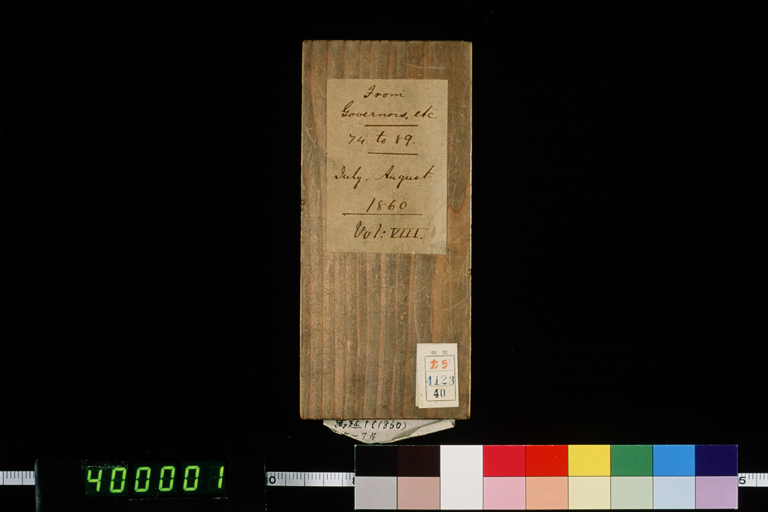 From
Governors, etc
74 to 89.
July. August
1860
Vol: VIII.
カラ
4123
40
(1860)
400001
0
5